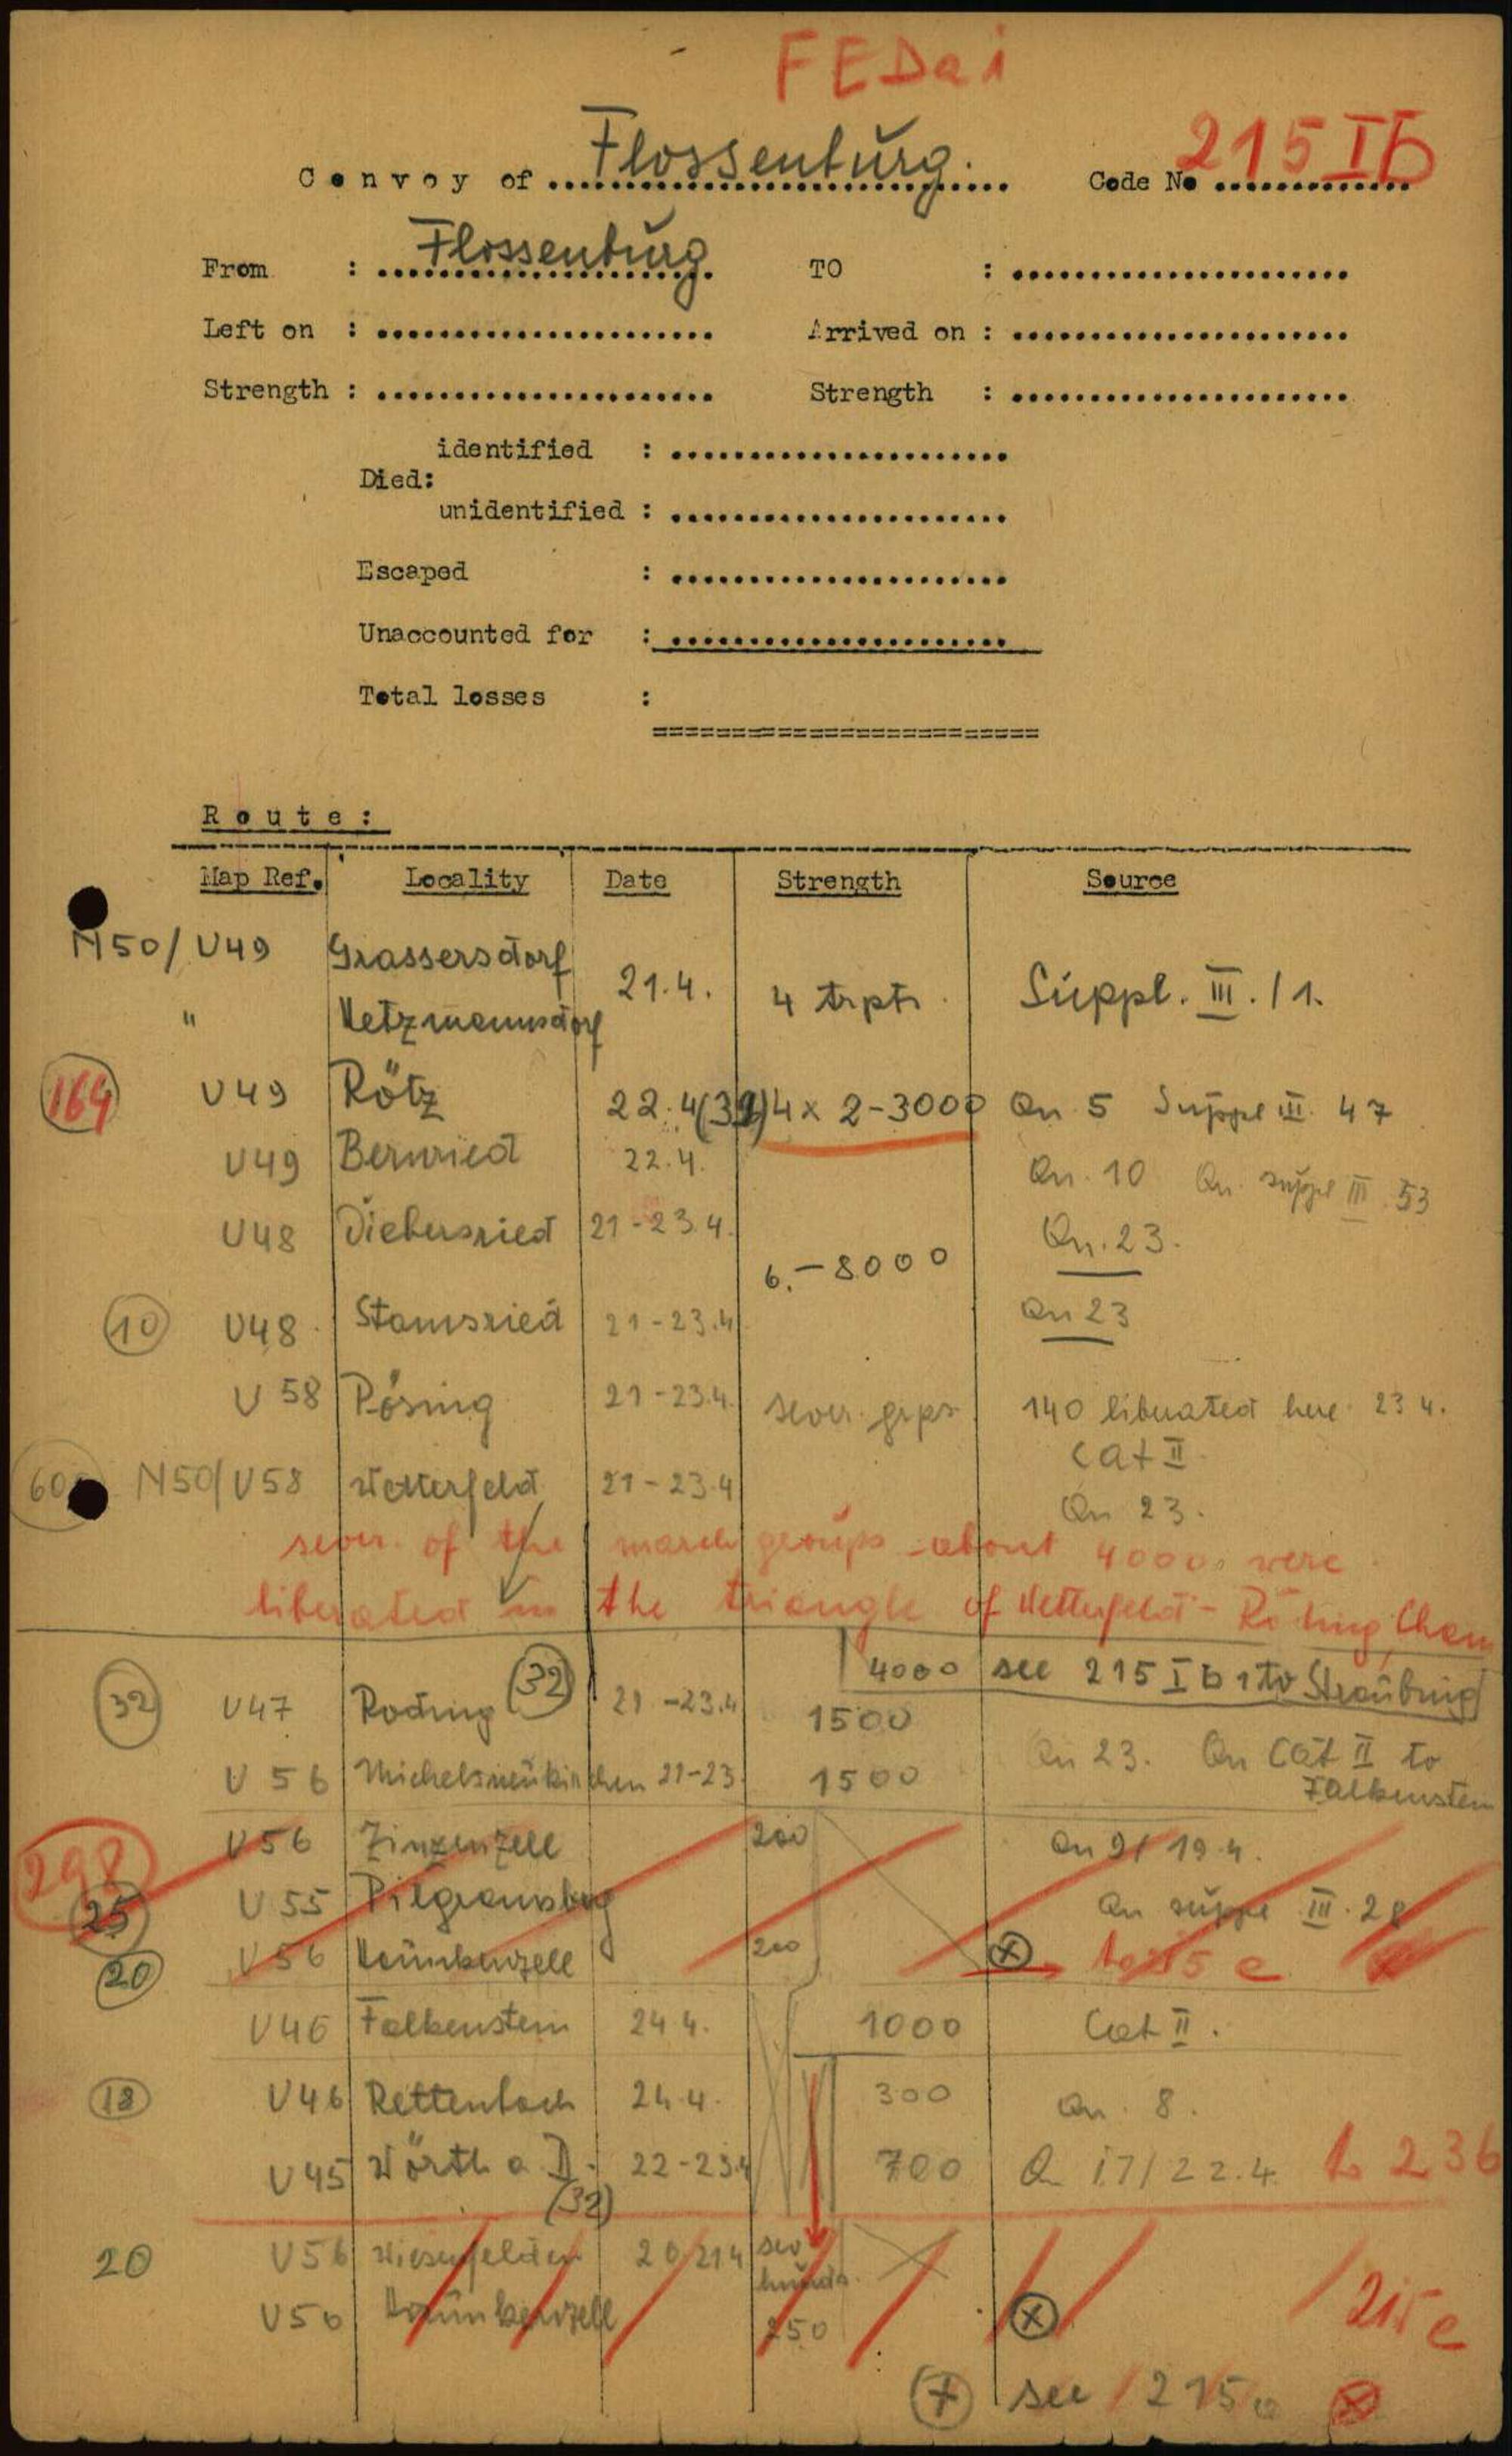 FEDai
Convoy of Flossenbürg. Code No 215 Ib
From : Flossenbürg TO :
Left on : Arrived on :
Strength : Strength :
identified :
Died:
unidentified :
Escaped :
Unaccounted for :
Total losses :
Route:
Map Ref. Locality Date Strength Source
N50/U49 Grassersdorf
21.4. 4 trptr. Suppl. III./1.
" Hetzmannsdorf
164 U49 Rötz 22.4 4x 2-3000 Qu 5 Suppl III. 47
U49 Bernried 22.4. Qu. 10 Qu. suppl III. 53
U48 Diebersried 21-23.4. Qu. 23.
6.-8000
10 U48 Stamsried 21-23.4 Qu 23
U 58 Pösing 21-23.4. sever. grps 140 liberated here 23 4.
Cat II.
60 N50/U58 Wetterfeld 21-23.4 Qu 23.
sever. of the march groups about 4000 were
liberated in the triangle of Wetterfeld - Roding Cham
4000 see 215 I b 1 to Straubing
32 U47 Roding (32) 21-23.4 1500
U 56 Michelsneukirchen 21-23. 1500 Qu 23. Qu Cat II to
Falkenstein
298 U56 Zinzenzell 200 Qu 9/ 19.4.
25 U 55 Pilgramsberg Qu suppl III. 28
20 U56 Heunkenzell 200 to 215 e
U46 Falkenstein 24 4. 1000 Cat II.
18 U46 Rettenbach 24.4. 300 Qu. 8.
U45 Wörth a. D. 22-23.4 700 Q 17/22.4. to 236
(32)
20 U56 Wiesenfelden 20/21 4 sev
hundr.
U56 Haunkenzell 250 215 e
see 215 e